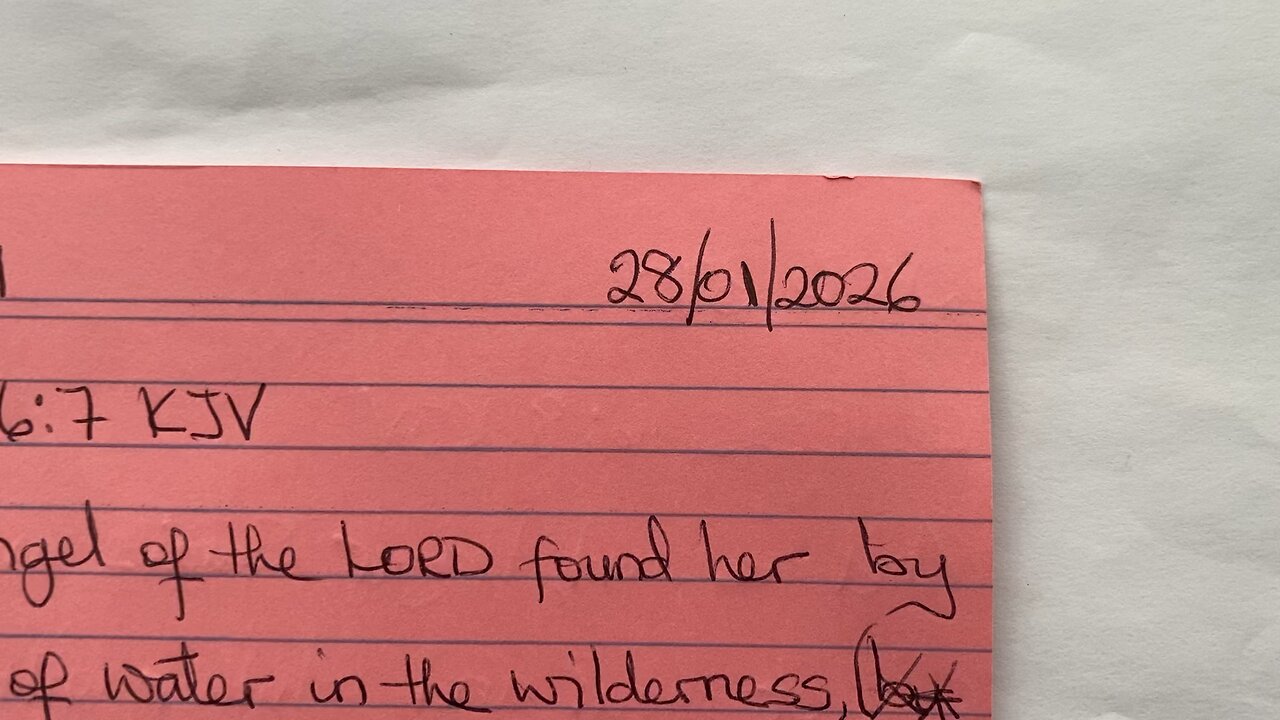 28/01/2026
6:7 KJV
ngel of the LORD found her by
of water in the wilderness,